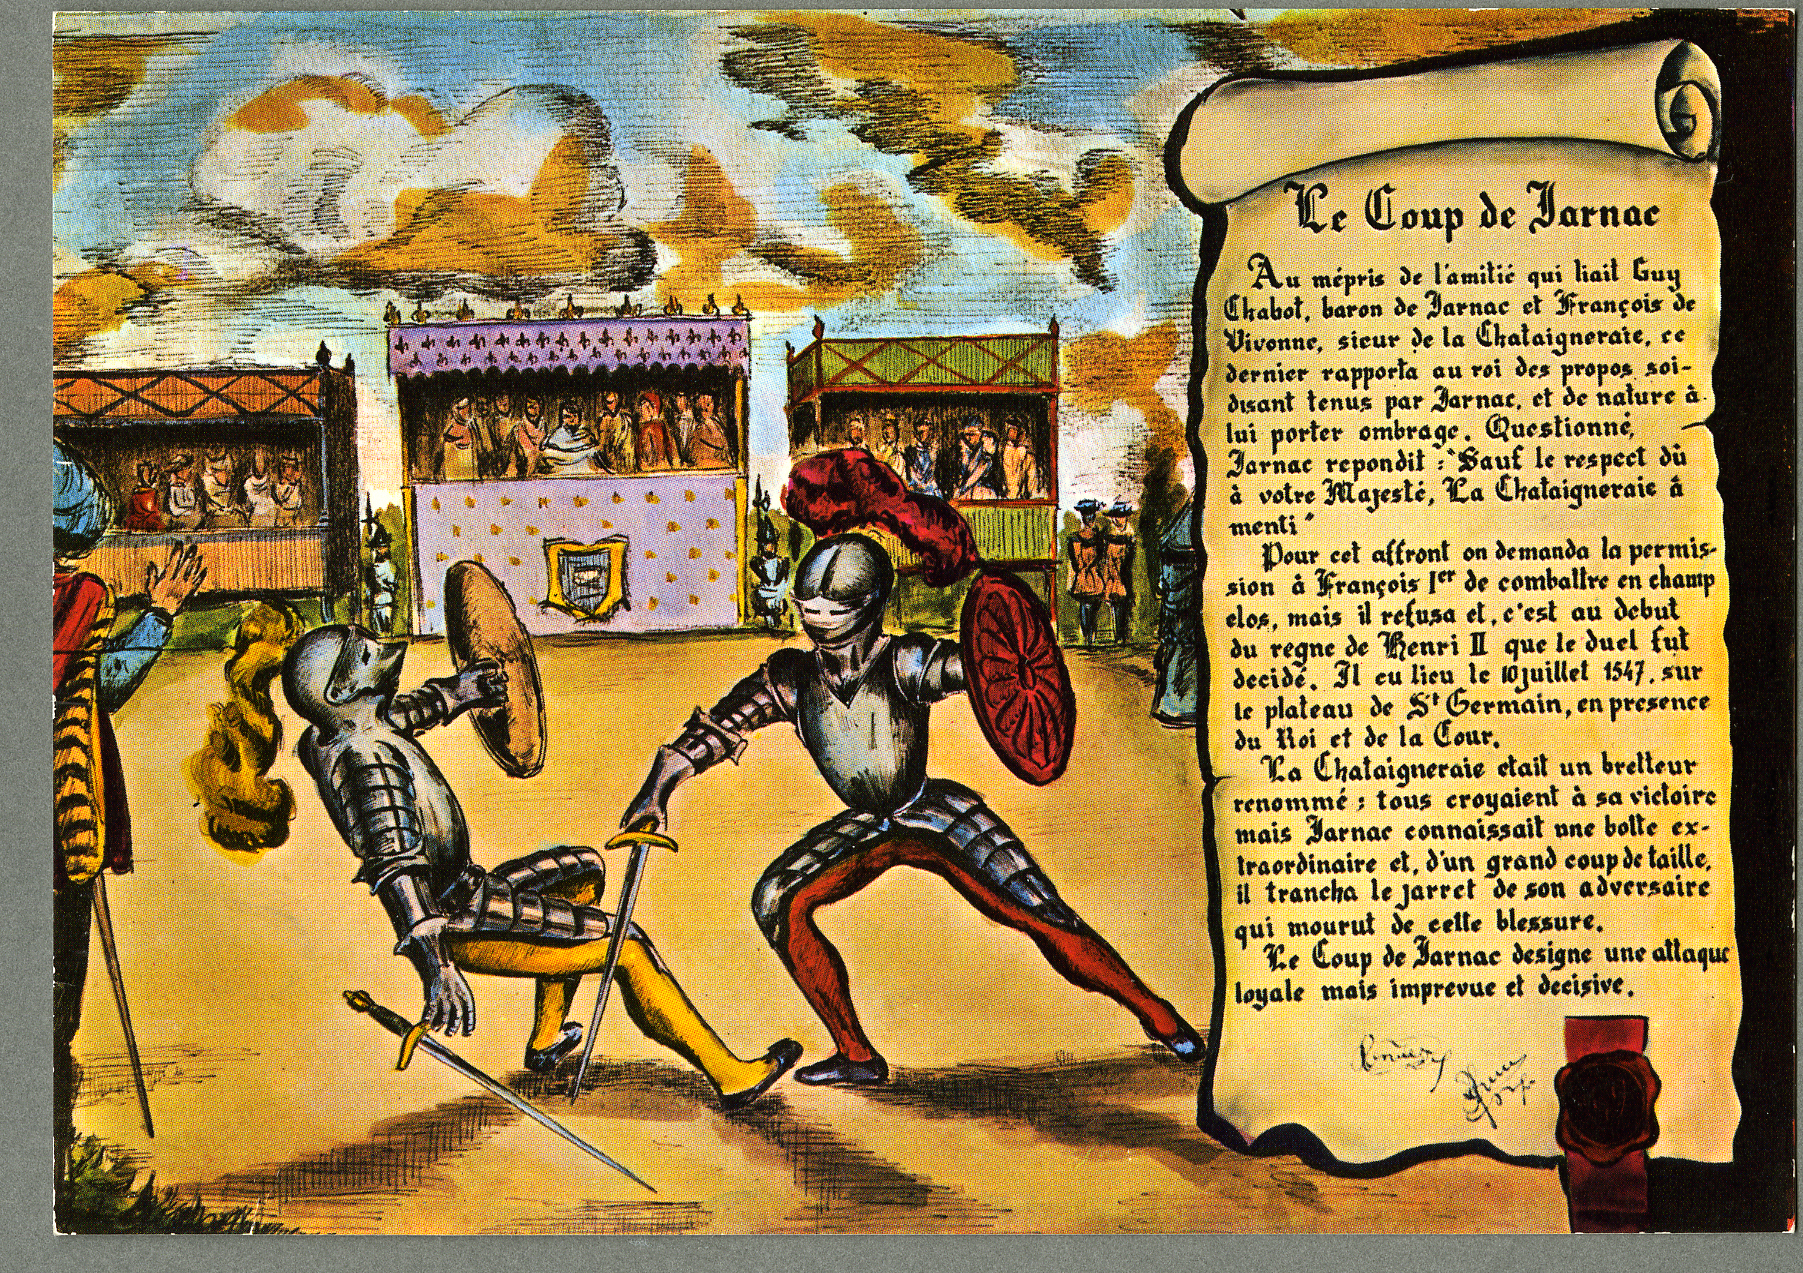 Le Coup de Jarnac
Au mépris de l'amitié qui liait Guy
Chabot, baron de Jarnac et François de
Vivonne, sieur de la Chataigneraie, ce
dernier rapporta au roi des propos soi-
disant tenus par Jarnac, et de nature à
lui porter ombrage. Questionné,
Jarnac repondit : "Sauf le respect dû
à votre Majesté, La Chataigneraie à
menti"
Pour cet affront on demanda la permis-
sion à François Ier de combattre en champ
clos, mais il refusa et, c'est au debut
du regne de Henri II que le duel fut
decidé. Il eu lieu le 10 juillet 1547, sur
le plateau de St Germain, en presence
du Roi et de la Cour.
La Chataigneraie etait un bretteur
renommé : tous croyaient à sa victoire
mais Jarnac connaissait une botte ex-
traordinaire et, d'un grand coup de taille,
il trancha le jarret de son adversaire
qui mourut de cette blessure.
Le Coup de Jarnac designe une attaque
loyale mais imprevue et decisive.